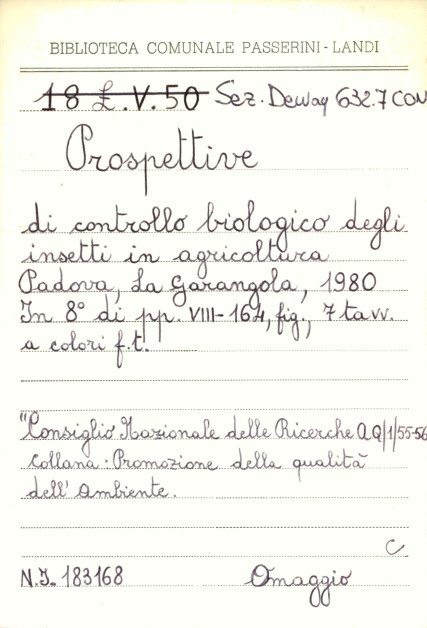 BIBLIOTECA COMUNALE PASSERINI-LANDI
18 £.V.50 Sez. Deway 632.7 CON
Prospettive
di controllo biologico degli
insetti in agricoltura
Padova, La Garangola, 1980
In 8° di pp. VIII-164, fig., 7 tavv.
a colori f.t.
"Consiglio Nazionale delle Ricerche AQ/1/55-56
Collana: Promozione della qualità
dell'Ambiente.
C
N.I. 183168 Omaggio